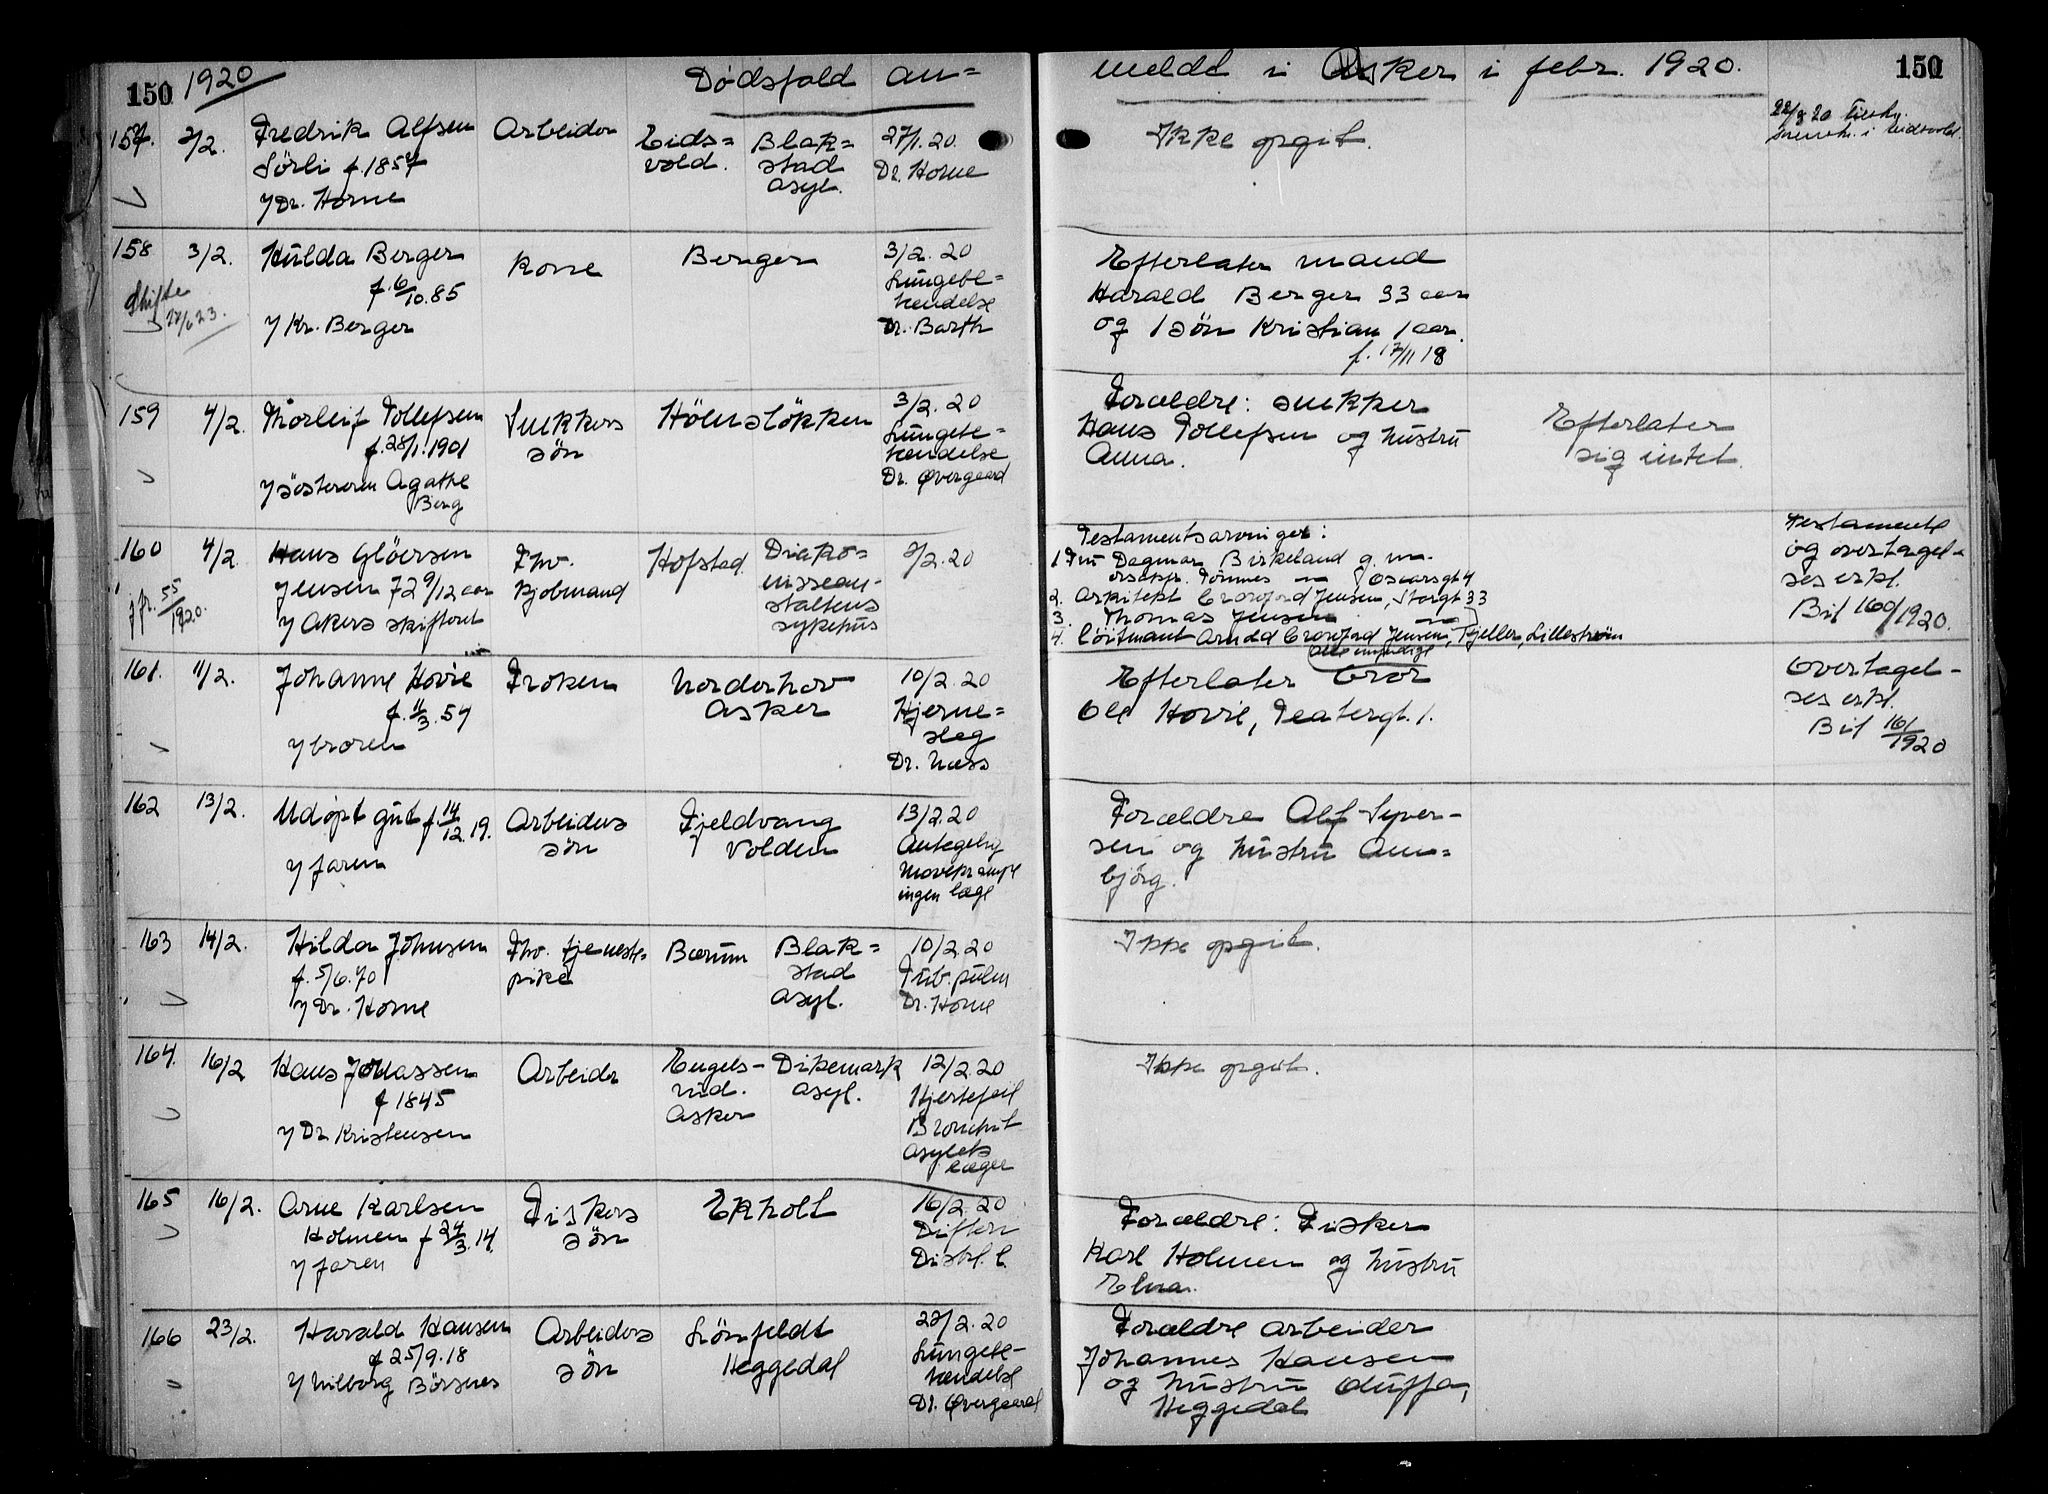 150 1920 Dødsfald an= meldt i Asker i febr. 1920. 150
157. 2/2. Fredrik Alfsen Sörli f. 1857
y Dr. Horne
Arbeider
Eids=
vold.
Blak=
stad
asyl.
27/1. 20.
Dr. Horne
Ikke opgit.
22/3 20
i Eidsvold.
158 3/2. Hulda Berger
f. 6/10. 85
y Kr. Berger
Skifte
Kone
Berger
3/2. 20
Lungebe=
tændelse
Dr. Barth
Efterlater mand
Harald Berger 33 aar
og 1 sön Kristian 1 aar.
f. 17/11 18
159 4/2. Thorleif Tollefsen
f. 28/1. 1901
y søsteren Agathe
Berg
Snekkers
sön
Hölnslökken
3/2. 20
Lungebe=
tændelse
Dr. Øvergaard
Forældre: snekker
Hans Tollefsen og hustru
Anna.
Efterlater
sig intet.
160 4/2. Hans Glöersen
Jensen 72 9/12 aar
y Akers skifteret
jfr. 55/1920.
Fhv.
kjøbmand
Hofstad.
Diako=
nissean-
staltens
sykehus
2/2. 20
Testamentsarvinger:
1 Fru Dagmar Birkeland g. m.
Oscarsgt 4
2. Arkitekt Crawford Jensen, Storgt 33
3. Thomas Jensen
4. Löitnant Arndd Crawford Jensen, Kjeller, Lilleström
Alle myndige
Testamente
og overtagel-
ses erkl.
Bil 160/1920.
161. 11/2. Johanne Hovie
f. 11/3. 57
y broren
Frøken
Norderhov
Asker
10/2. 20
Hjerne=
slag
Dr. Næss
Efterlater bror
Ole Hovie, Teatergt. 1.
Overtagel-
ses erkl.
Bil 161/1920
162 13/2. Udøpt gut f. 14/12. 19.
y faren
Arbeiders
sön
Fjeldvang
Volden
13/2. 20
Antagelig
ingen læge
Forældre Alf Syver-
sen og hustru Ann=
björg.
163 14/2. Hilda Johnsen
f. 5/6. 70
y Dr. Horne
Fhv. tjeneste-
pike
Bærum
Blak=
stad
asyl.
10/2. 20
Tub. pulm
Dr. Horne
Ikke opgit.
164. 16/2 Hans Jonassen
f 1845
y Dr Kristensen
Arbeider
Engels-
rud.
Asker
Dikemark
asyl.
12/2. 20
Hjertefeil
Bronchit
asylets
læger
Ikke opgit.
165 16/2. Arne Karlsen
Holmen f 24/3. 14.
y faren
Fiskers
sön
Ekholt
16/2. 20
Difteri
Distr. l.
Forældre: Fisker
Karl Holmen og hustru
Elna.
166 23/2. Harald Hansen
f 25/9. 18
y Börsnes
Arbeiders
sön
Lönfeldt
Heggedal
22/2. 20
Lungebe-
tændelse
Dr. Øvergaard
Forældre arbeider
Johannes Hansen
og hustru Oluffa,
Heggedal